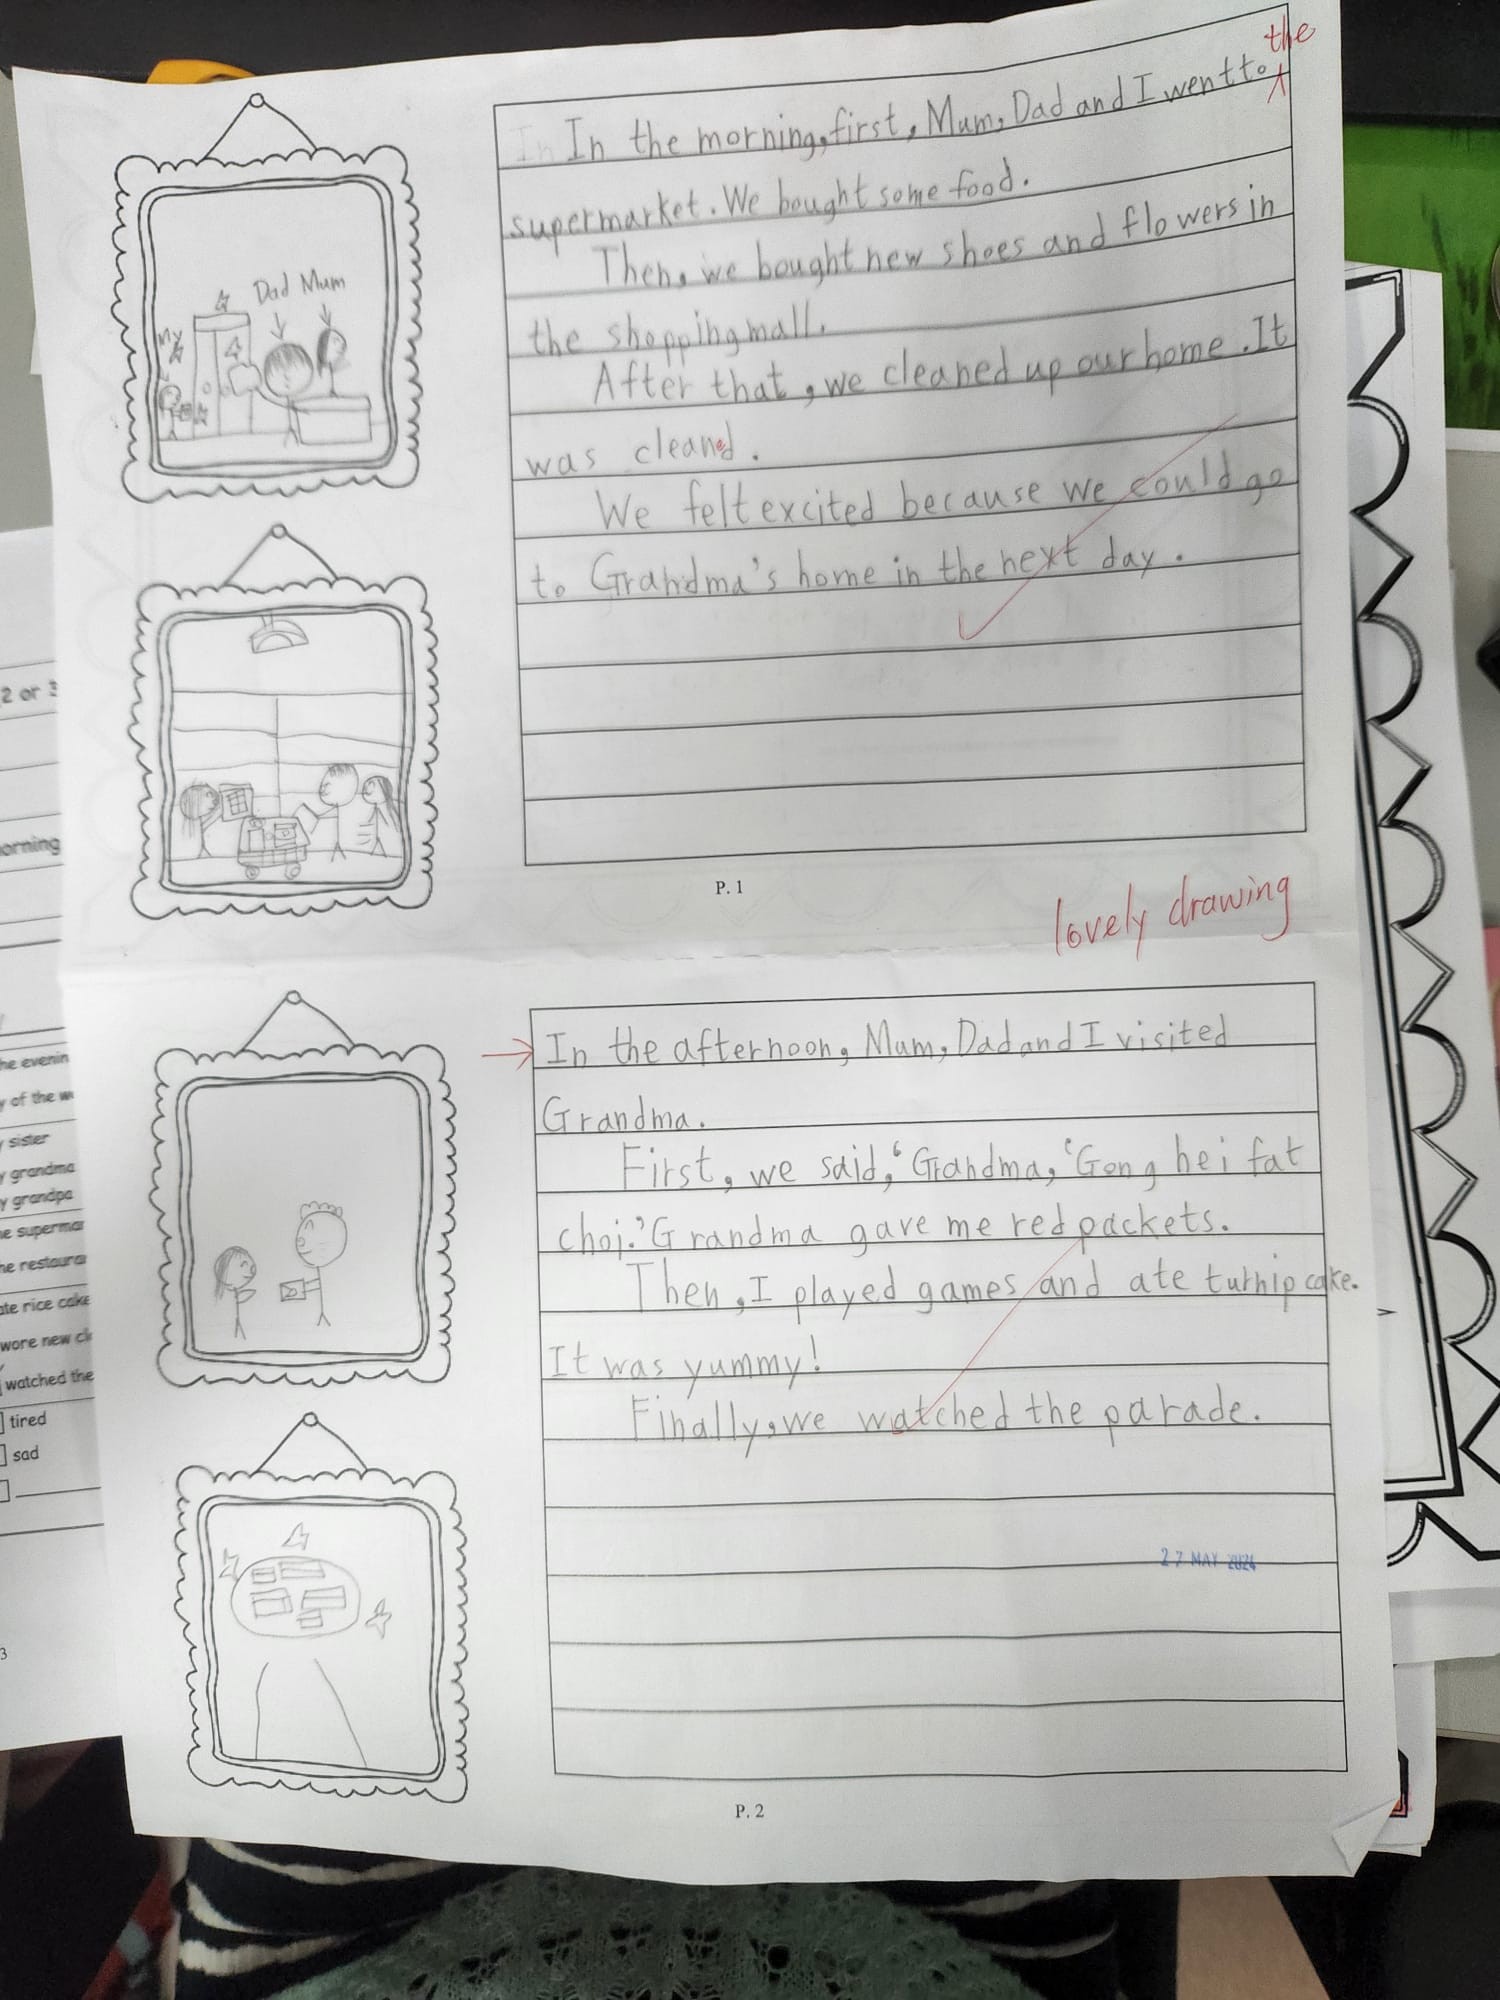 the
In In the morning, first, Mum, Dad and I went to
supermarket. We bought some food.
Then, we bought new shoes and flowers in
the shopping mall.
After that, we cleaned up our home. It
was cleaned.
We felt excited because we could go
to Grandma's home in the next day.
Dad Mum
my
P. 1
lovely drawing
In the afternoon, Mum, Dad and I visited
Grandma.
First, we said, 'Grandma, 'Gong hei fat
choi.' Grandma gave me red packets.
Then, I played games and ate turnip cake.
It was yummy!
Finally, we watched the parade.
27 MAY 2024
P. 2
2 or 3
orning
he evenin
y of the w
y sister
y grandma
y grandpa
he supermar
he restaura
ate rice cake
wore new cl
watched the
tired
sad
3